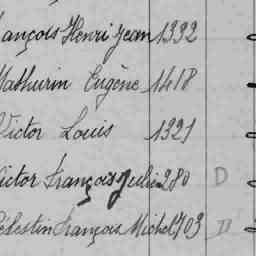 ançois Henri Jean 1332
Mathurin Eugène 1418
Victor Louis 1321
ictor François Julien 280 D
élestin François Michel 1703 D